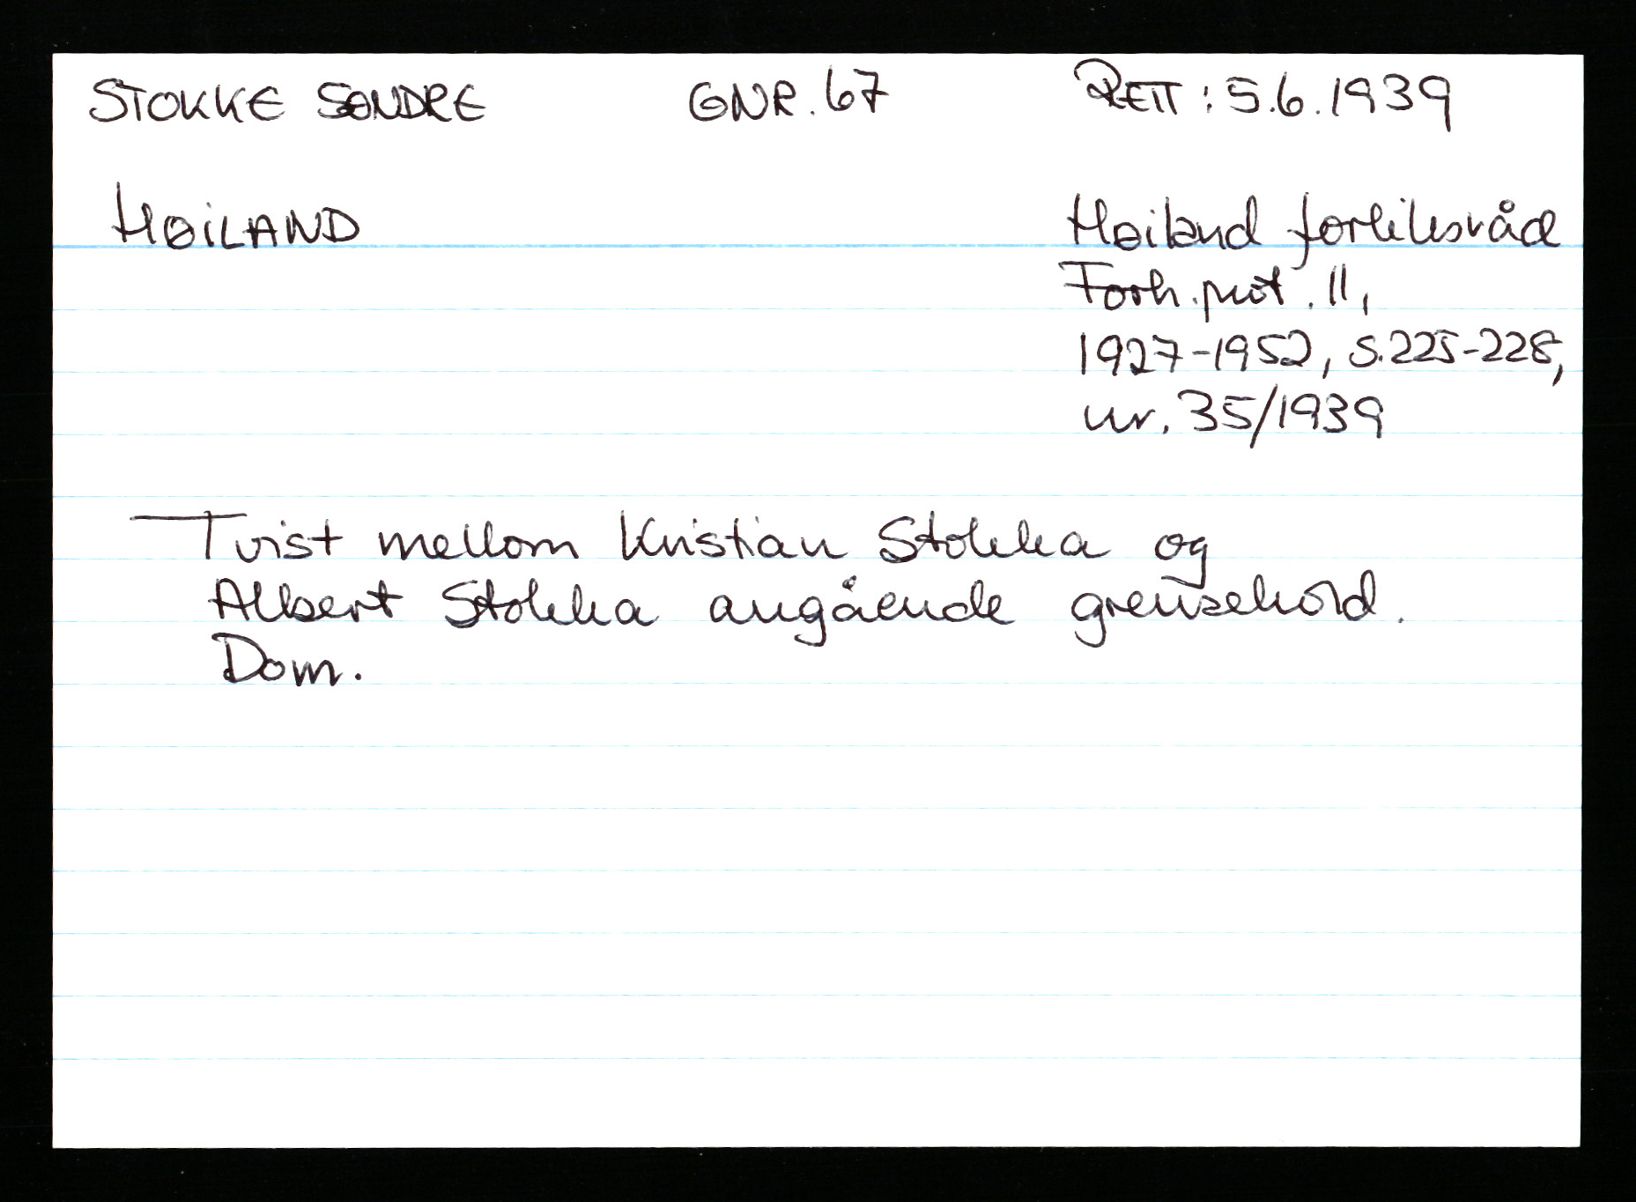 STOKKE SØNDRE GNR. 67 RETT : 5.6.1939
HØILAND
Høiland forliksråd
Forh. prot. 11,
1927-1952, s. 225-228,
nr. 35/1939
Tvist mellom Kristian Stokka og
Albert Stokka angående grensehold.
Dom.